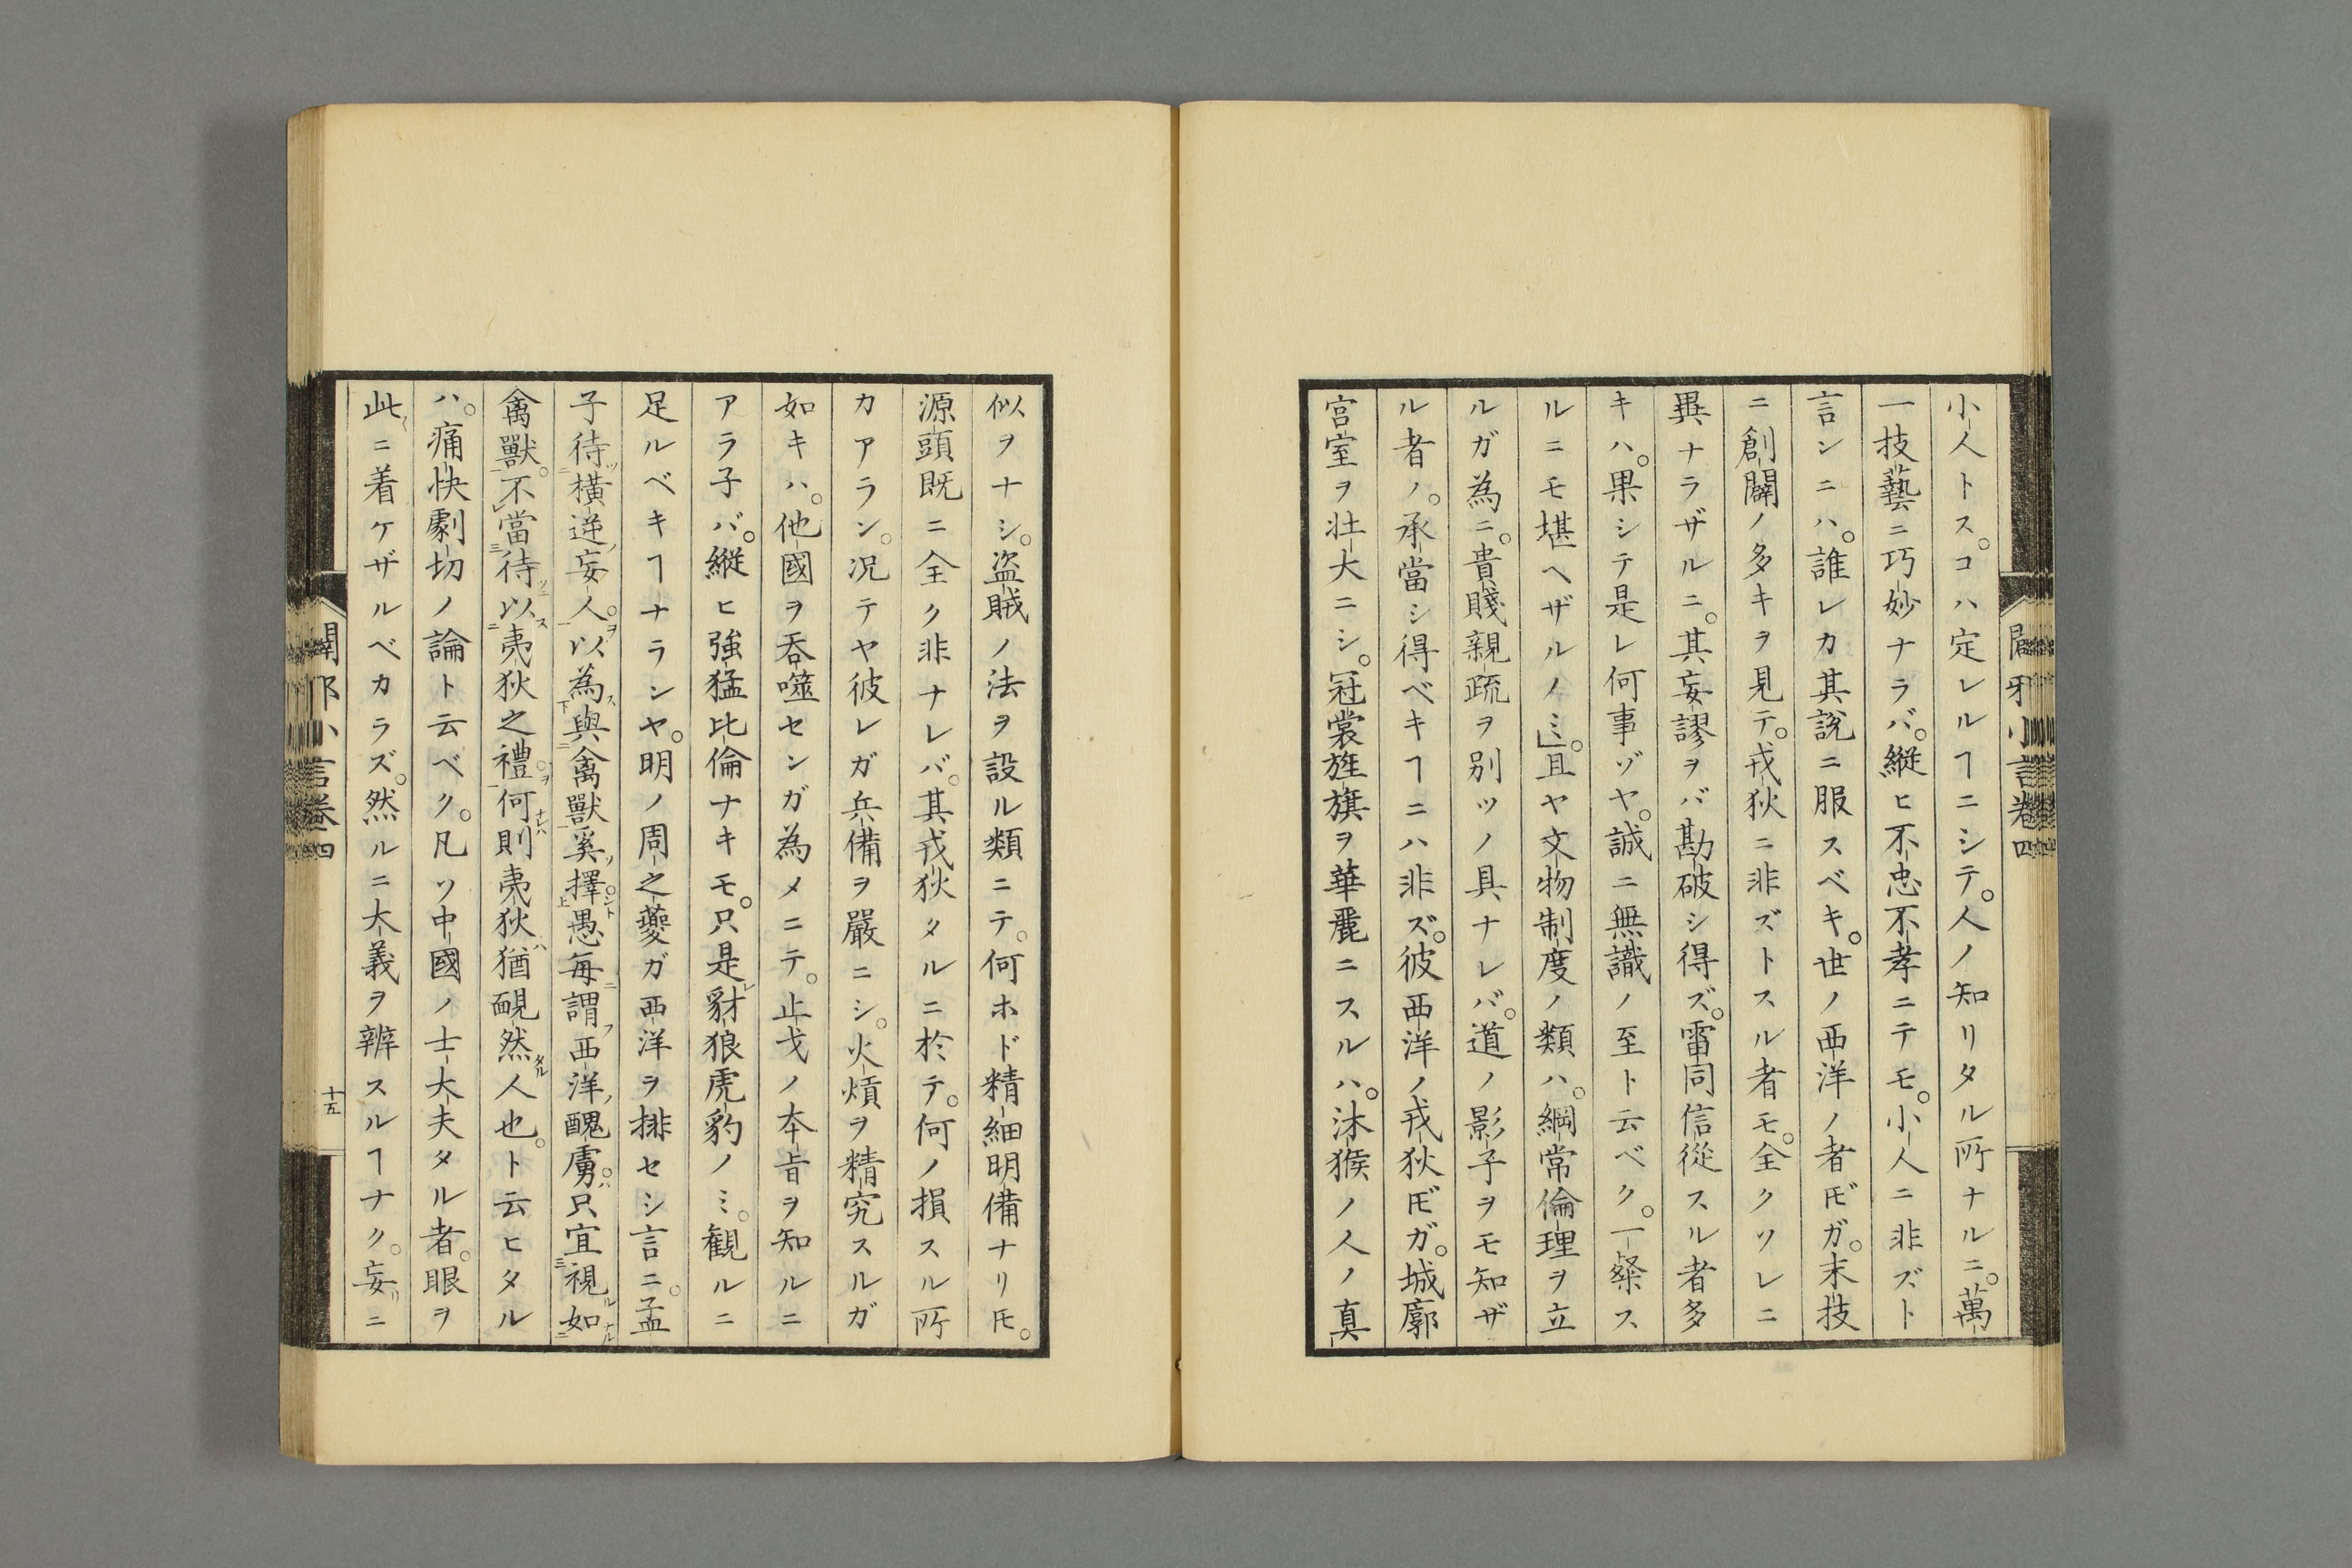 小人トス。コハ定レルヿニシテ。人ノ知リタル所ナルニ。萬
一技藝ニ巧妙ナラバ。縱ヒ不忠不孝ニテモ。小人ニ非ズト
言ンニハ。誰レカ其說ニ服スベキ。世ノ西洋ノ者𪜈ガ。末技
ニ創闢ノ多キヲ見テ。戎狄ニ非ズトスル者モ。全クソレニ
異ナラザルニ。其妄謬ヲバ勘破シ得ズ。雷同信從スル者多
キハ。果シテ是レ何事ゾヤ。誠ニ無識ノ至ト云ベク。一粲ス
ルニモ堪ヘザルノミ」。且ヤ文物制度ノ類ハ。綱常倫理ヲ立
ルガ為ニ。貴賤親疏ヲ別ツノ具ナレバ。道ノ影子ヲモ知ザ
ル者ノ。承當シ得ベキヿニハ非ズ。彼西洋ノ戎狄𪜈ガ。城廓
宮室ヲ壮大ニシ。冠裳旌旗ヲ華麗ニスルハ。沐猴ノ人ノ真
闢邪小言卷四
似ヲナシ。盗賊ノ法ヲ設ル類ニテ。何ホド精細明備ナリ𪜈。
源頭既ニ全ク非ナレバ。其戎狄タルニ於テ。何ノ損スル所
カアラン。況テヤ彼レガ兵備ヲ嚴ニシ。火熕ヲ精究スルガ
如キハ。他國ヲ吞噬センガ為メニテ。止戈ノ本旨ヲ知ルニ
アラ子バ。縱ヒ強猛比倫ナキモ。只是レ豺狼虎豹ノミ。観ルニ
足ルベキヿナランヤ。明ノ周之夔ガ西洋ヲ排セシ言ニ。孟
子待ツニ橫逆ノ妄人ヲ一。以為ス下與二禽獸一奚ノ擇上。ント愚每ニ謂フ西洋ノ醜虜。ハ只宜三視ル如ナルニ
禽獸一。不レ當三待ツニ以スニ夷狄之禮ヲ一。何ナレハ則夷狄ハ猶靦然タル人也。ト云ヒタル
ハ。痛快劇切ノ論ト云ベク。凡ソ中國ノ士大夫タル者。眼ヲ
此ニ着ケザルベカラズ。然ルニ大義ヲ辨スルヿナク。妄リニ
闢邪小言卷四
十五